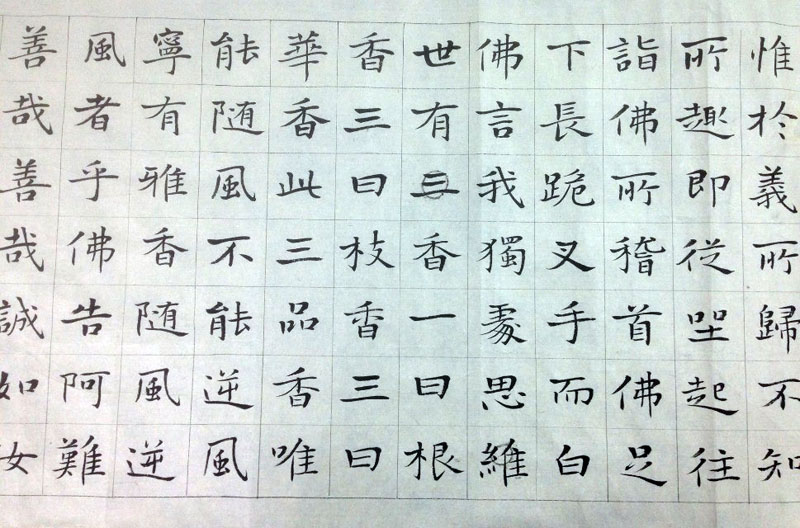 惟於義所歸不知
所趣即從坐起往
詣佛所稽首佛足
下長跪叉手而白
佛言我獨處思維
世有三香一曰根
香三曰枝香三曰
華香此三品香唯
能随風不能逆風
寧有雅香随風逆
風者乎佛告阿難
善哉善哉誠如女